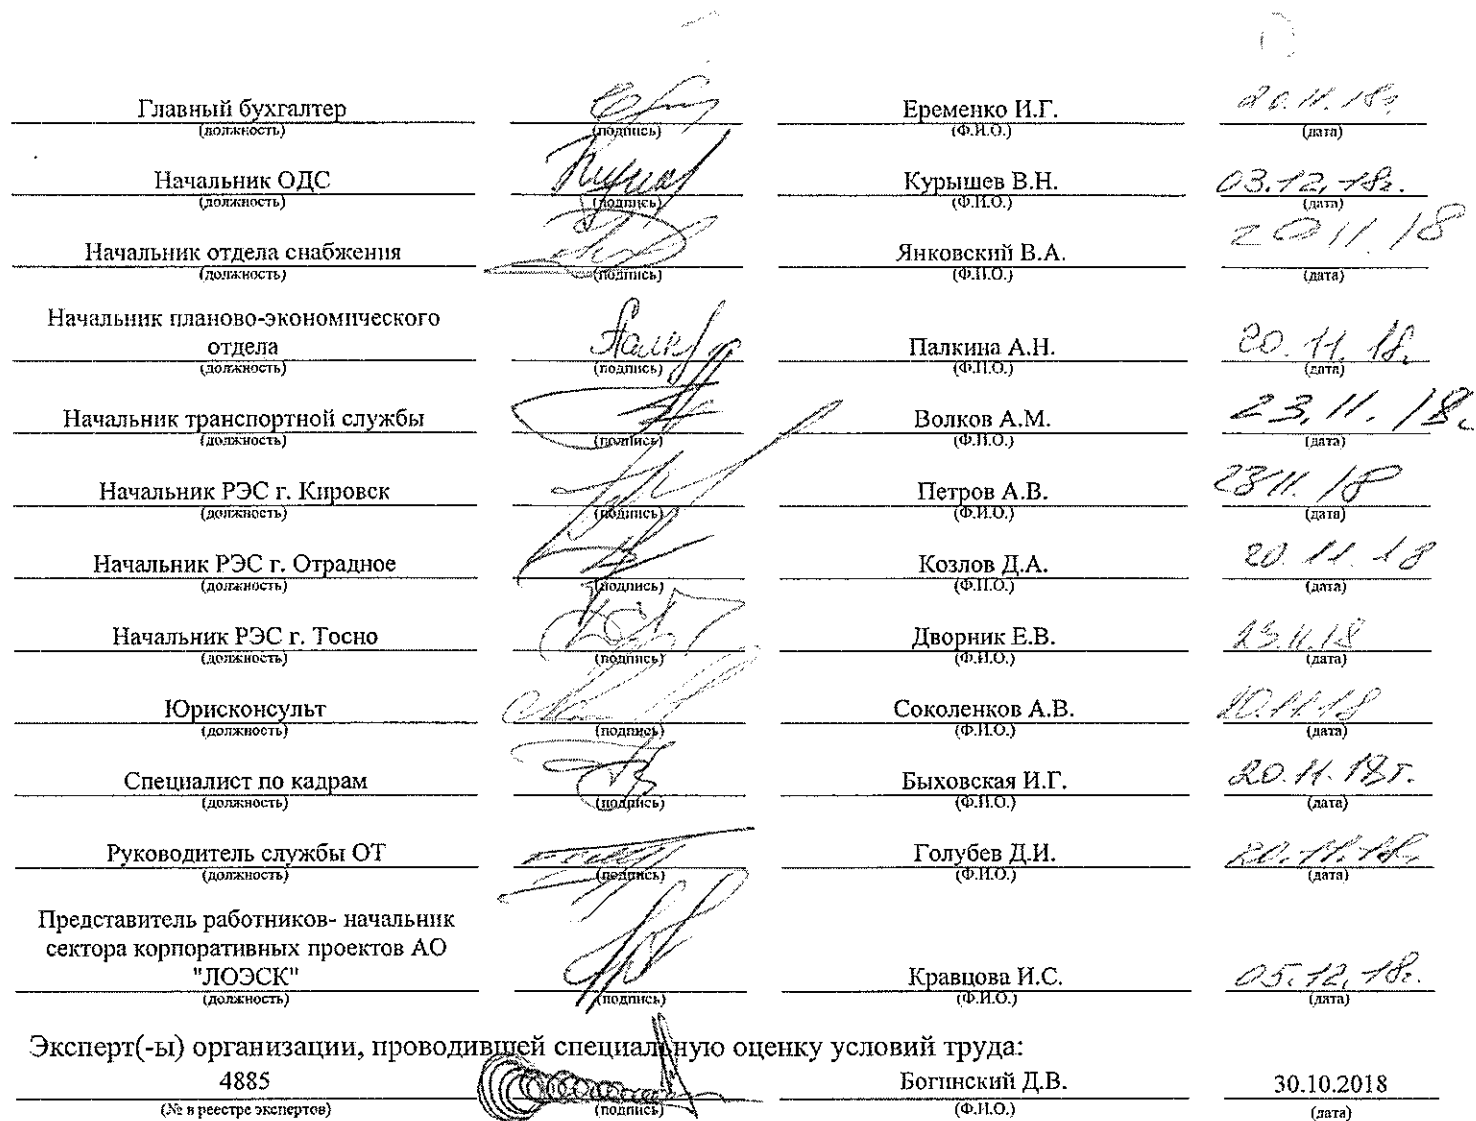 Главный бухгалтер Еременко И.Г. 20.11.18г
(должность) (подпись) (Ф.И.О.) (дата)
Начальник ОДС Курышев В.Н. 03.12.18г.
(должность) (подпись) (Ф.И.О.) (дата)
Начальник отдела снабжения Янковский В.А. 20 11.18
(должность) (подпись) (Ф.И.О.) (дата)
Начальник планово-экономического
отдела Палкина А.Н. 20.11.18.
(должность) (подпись) (Ф.И.О.) (дата)
Начальник транспортной службы Волков А.М. 23.11.18г
(должность) (подпись) (Ф.И.О.) (дата)
Начальник РЭС г. Кировск Петров А.В. 2311.18
(должность) (подпись) (Ф.И.О.) (дата)
Начальник РЭС г. Отрадное Козлов Д.А. 20.11.18
(должность) (подпись) (Ф.И.О.) (дата)
Начальник РЭС г. Тосно Дворник Е.В. 23.11.18
(должность) (подпись) (Ф.И.О.) (дата)
Юрисконсульт Соколенков А.В. 20.11.18
(должность) (подпись) (Ф.И.О.) (дата)
Специалист по кадрам Быховская И.Г. 20.11.18г.
(должность) (подпись) (Ф.И.О.) (дата)
Руководитель службы ОТ Голубев Д.И. 20.11.18г
(должность) (подпись) (Ф.И.О.) (дата)
Представитель работников- начальник
сектора корпоративных проектов АО
"ЛОЭСК" Кравцова И.С. 05.12.18г.
(должность) (подпись) (Ф.И.О.) (дата)
Эксперт(-ы) организации, проводившей специальную оценку условий труда:
4885 Богинский Д.В. 30.10.2018
(№ в реестре экспертов) (подпись) (Ф.И.О.) (дата)